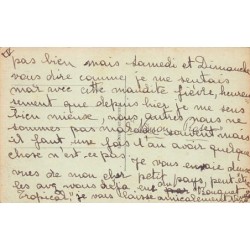 IV
pas bien mais samedi et Dimanche
vous dire comme je me sentais
mal avec cette maudite fièvre, heureu
sement que depuis hier je me sens
bien mieux, nous autres nous ne
sommes pas malades souvent mais
il faut une fois il au avoir quelque
chose n'est ce pas. Je vous envoie deux
vues de mon cher petit pays, peut être
les avez vous déjà
Tropical" je vous laisse amicalement